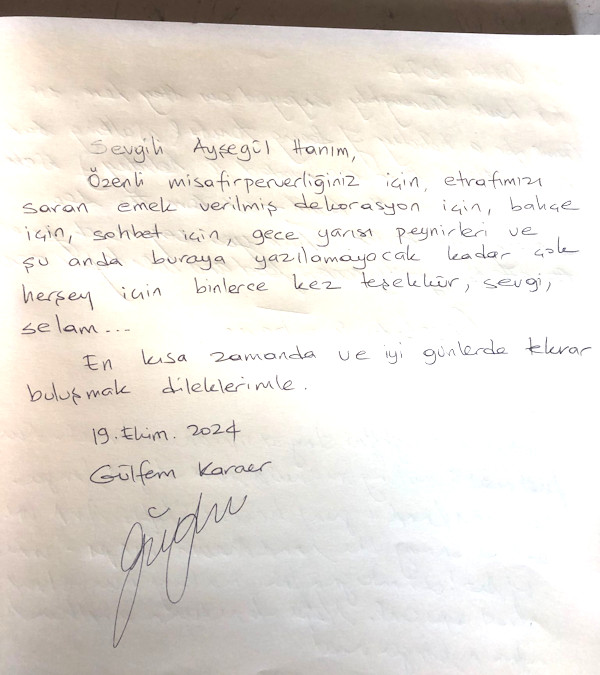 Sevgili Ayşegül Hanım,
Özenli misafirperverliğiniz için, etrafımızı
saran emek verilmiş dekorasyon için, bahçe
için, sohbet için, gece yarısı peynirleri ve
şu anda buraya yazılamayacak kadar çok
herşey için binlerce kez teşekkür, sevgi,
selam...
En kısa zamanda ve iyi günlerde tekrar
buluşmak dileklerimle.
19.Ekim.2024
Gülfem Karaer